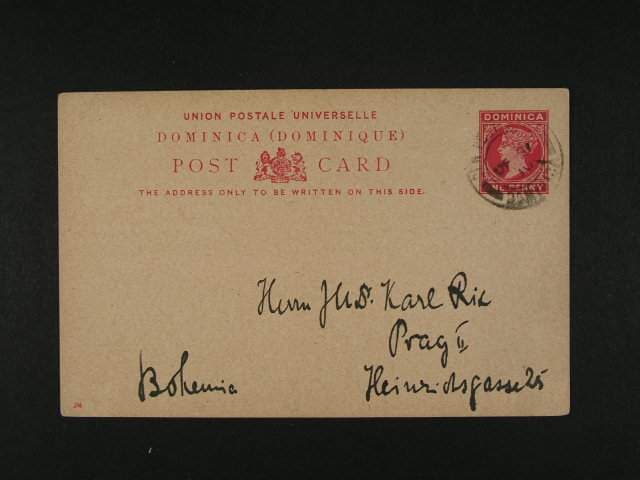 UNION POSTALE UNIVERSELLE
DOMINICA (DOMINIQUE)
POST CARD
THE ADDRESS ONLY TO BE WRITTEN ON THIS SIDE.
DOMINICA
ONE PENNY
Herrn JUD. Karl Rix
Prag II
Bohemia
Heinrichsgasse 25